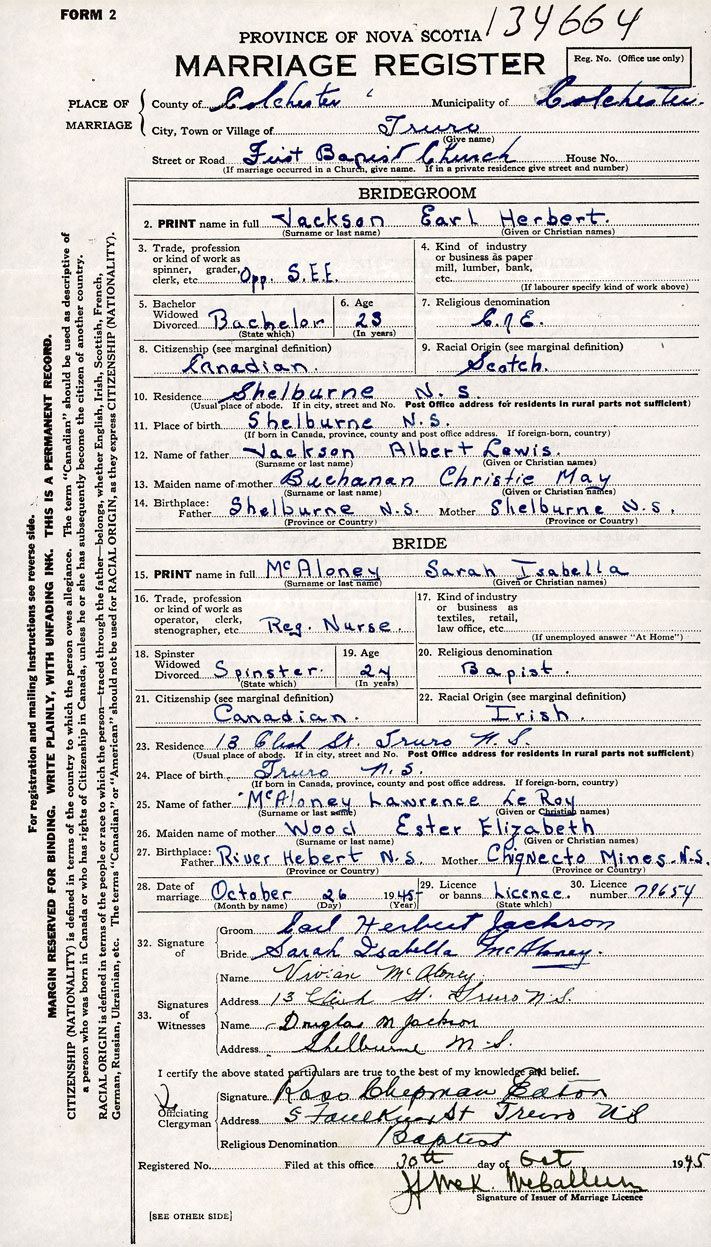 FORM 2
134664
PROVINCE OF NOVA SCOTIA
MARRIAGE REGISTER
Reg. No. (Office use only)
PLACE OF MARRIAGE
County of Colchester Municipality of Colchester
City, Town or Village of Truro
(Give name)
Street or Road First Bapist Church House No.
(If marriage occurred in a Church, give name. If in a private residence give street and number)
BRIDEGROOM
2. PRINT name in full Jackson Earl Herbert.
(Surname or last name) (Given or Christian names)
3. Trade, profession or kind of work as spinner, grader, clerk, etc. Opp. S.E.E.
4. Kind of industry or business as paper mill, lumber, bank, etc.
(If labourer specify kind of work above)
5. Bachelor Widowed Divorced Bachelor
(State which)
6. Age 23
(In years)
7. Religious denomination
C of E.
8. Citizenship (see marginal definition)
Canadian.
9. Racial Origin (see marginal definition)
Scotch.
10. Residence Shelburne N.S.
(Usual place of abode. If in city, street and No. Post Office address for residents in rural parts not sufficient)
11. Place of birth Shelburne N.S.
(If born in Canada, province, county and post office address. If foreign-born, country)
12. Name of father Jackson Albert Lewis.
(Surname or last name) (Given or Christian names)
13. Maiden name of mother Buchanan Christie May
(Surname or last name) (Given or Christian names)
14. Birthplace: Father Shelburne N.S. Mother Shelburne N.S.
(Province or Country) (Province or Country)
BRIDE
15. PRINT name in full McAloney Sarah Isabella
(Surname or last name) (Given or Christian names)
16. Trade, profession or kind of work as operator, clerk, stenographer, etc. Reg. Nurse.
17. Kind of industry or business as textiles, retail, law office, etc.
(If unemployed answer "At Home")
18. Spinster Widowed Divorced Spinster.
(State which)
19. Age 24
(In years)
20. Religious denomination
Bapist.
21. Citizenship (see marginal definition)
Canadian.
22. Racial Origin (see marginal definition)
Irish.
23. Residence 13 St. Truro N.S.
(Usual place of abode. If in city, street and No. Post Office address for residents in rural parts not sufficient)
24. Place of birth Truro N.S.
(If born in Canada, province, county and post office address. If foreign-born, country)
25. Name of father McAloney Lawrence Le Roy
(Surname or last name) (Given or Christian names)
26. Maiden name of mother Wood Ester Elizabeth
(Surname or last name) (Given or Christian names)
27. Birthplace: Father River Hebert N.S. Mother Chignecto Mines. N.S.
(Province or Country) (Province or Country)
28. Date of marriage October 26 1945
(Month by name) (Day) (Year)
29. Licence or banns Licence.
(State which)
30. Licence number 79654
32. Signature of
Groom Earl Herbert Jackson
Bride Sarah Isabella McAloney.
33. Signatures of Witnesses
Name Vivian McAloney
Address 13 St. Truro N.S.
Name Douglas M Jackson
Address Shelburne N.S.
I certify the above stated particulars are true to the best of my knowledge and belief.
Officiating Clergyman
Signature Ross Chepman Eaton
Address 5 Faulkner St Truro NS
Religious Denomination Baptist
Registered No. Filed at this office 30th day of Oct 1945
Signature of Issuer of Marriage Licence
[SEE OTHER SIDE]
For registration and mailing Instructions see reverse side.
MARGIN RESERVED FOR BINDING. WRITE PLAINLY, WITH UNFADING INK. THIS IS A PERMANENT RECORD.
CITIZENSHIP (NATIONALITY) is defined in terms of the country to which the person owes allegiance. The term "Canadian" should be used as descriptive of
a person who was born in Canada or who has rights of Citizenship in Canada, unless he or she has subsequently become the citizen of another country.
RACIAL ORIGIN is defined in terms of the people or race to which the person—traced through the father—belongs, whether English, Irish, Scottish, French,
German, Russian, Ukrainian, etc. The terms "Canadian" or "American" should not be used for RACIAL ORIGIN, as they express CITIZENSHIP (NATIONALITY).